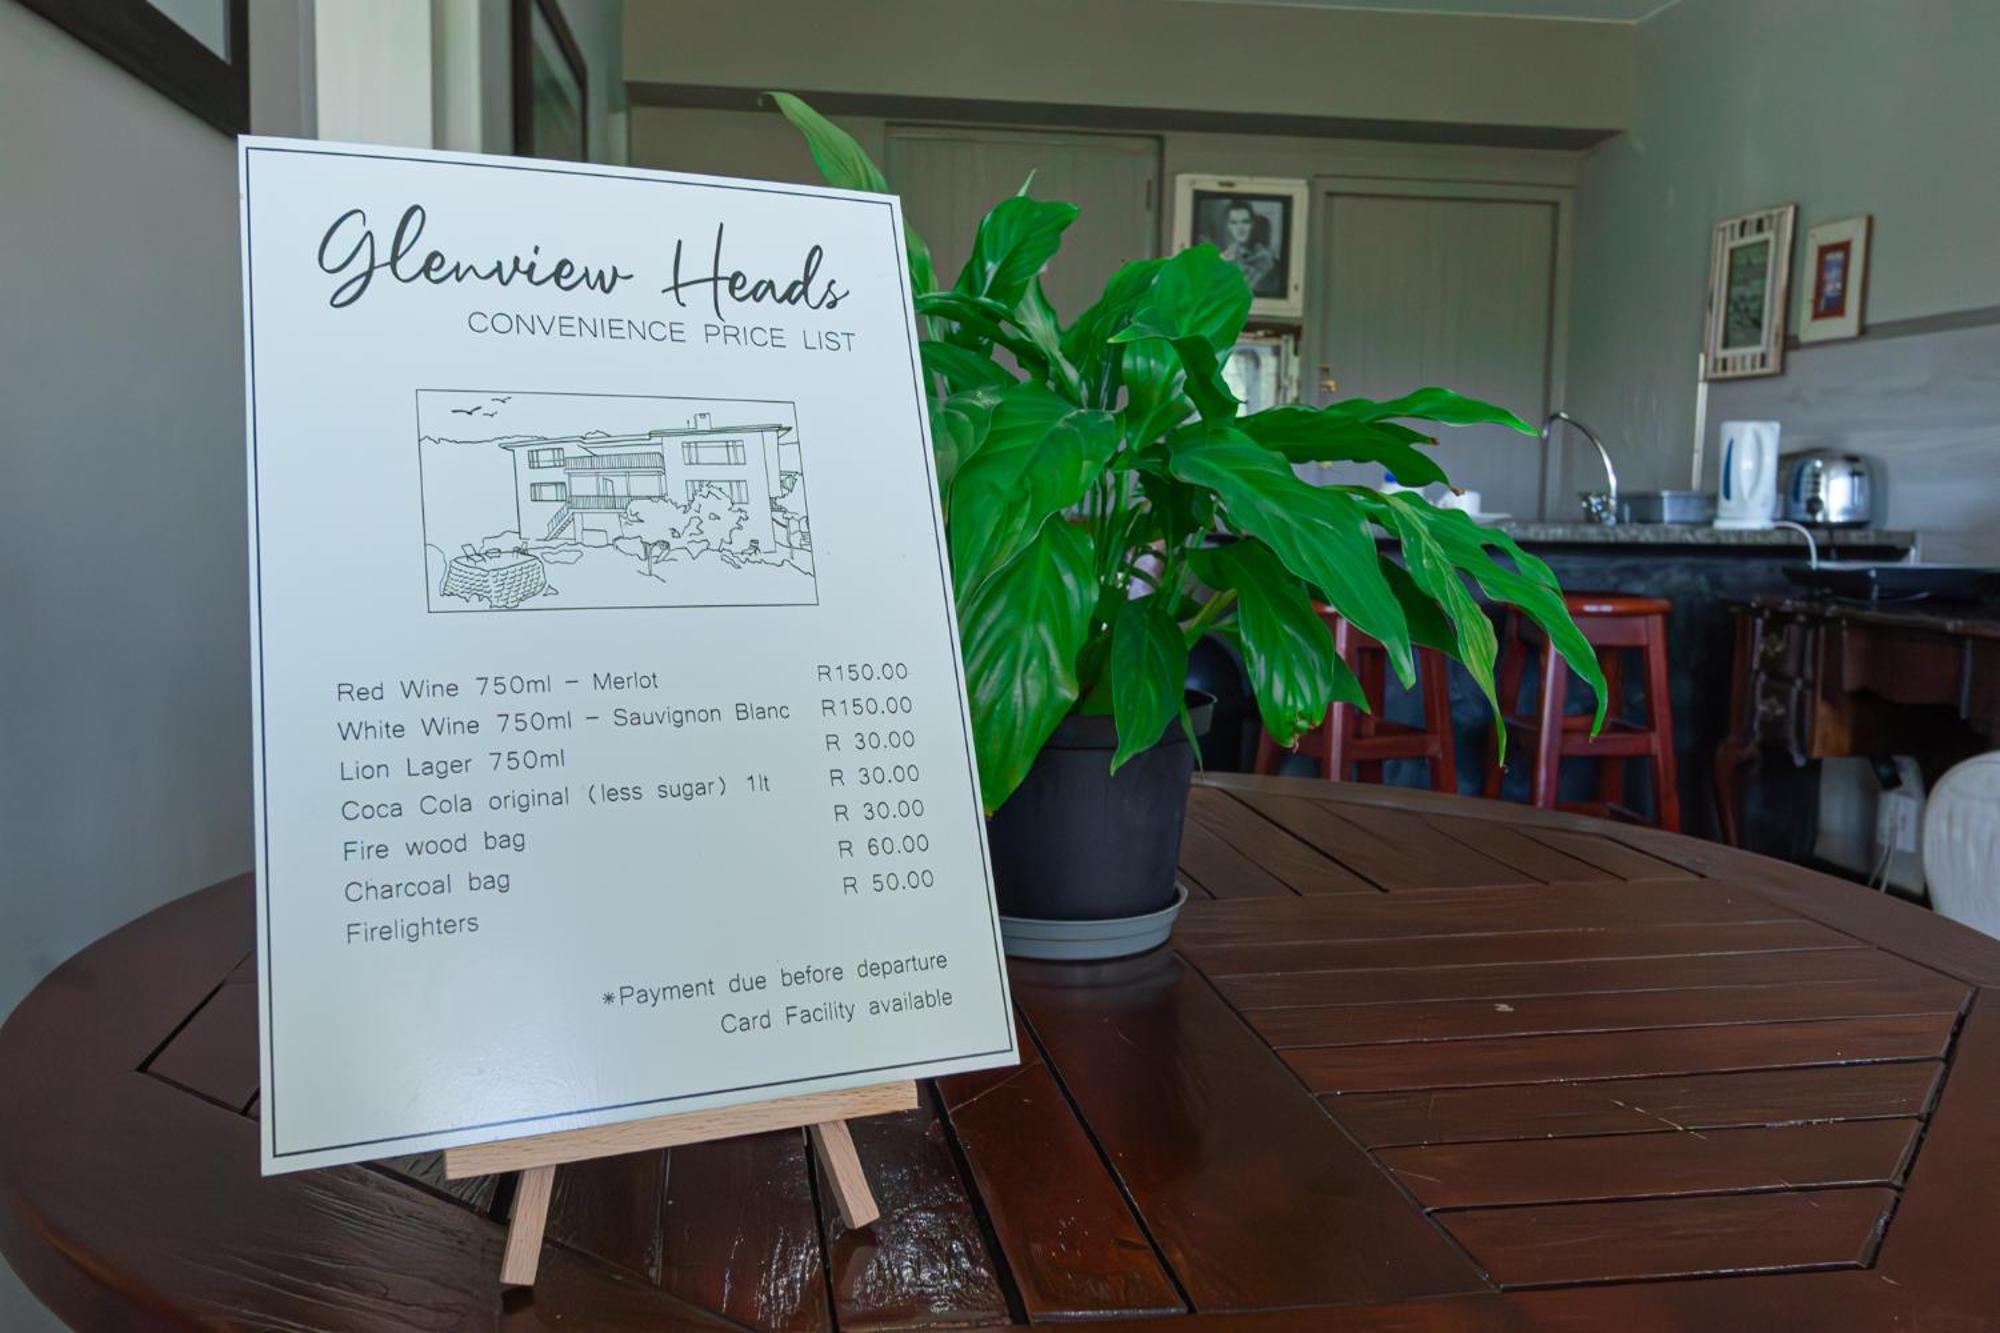 Glenview Heads
CONVENIENCE PRICE LIST
Red Wine 750ml – Merlot R150.00
White Wine 750ml – Sauvignon Blanc R150.00
Lion Lager 750ml R 30.00
Coca Cola original (less sugar) 1lt R 30.00
Fire wood bag R 30.00
Charcoal bag R 60.00
Firelighters R 50.00
*Payment due before departure
Card Facility available